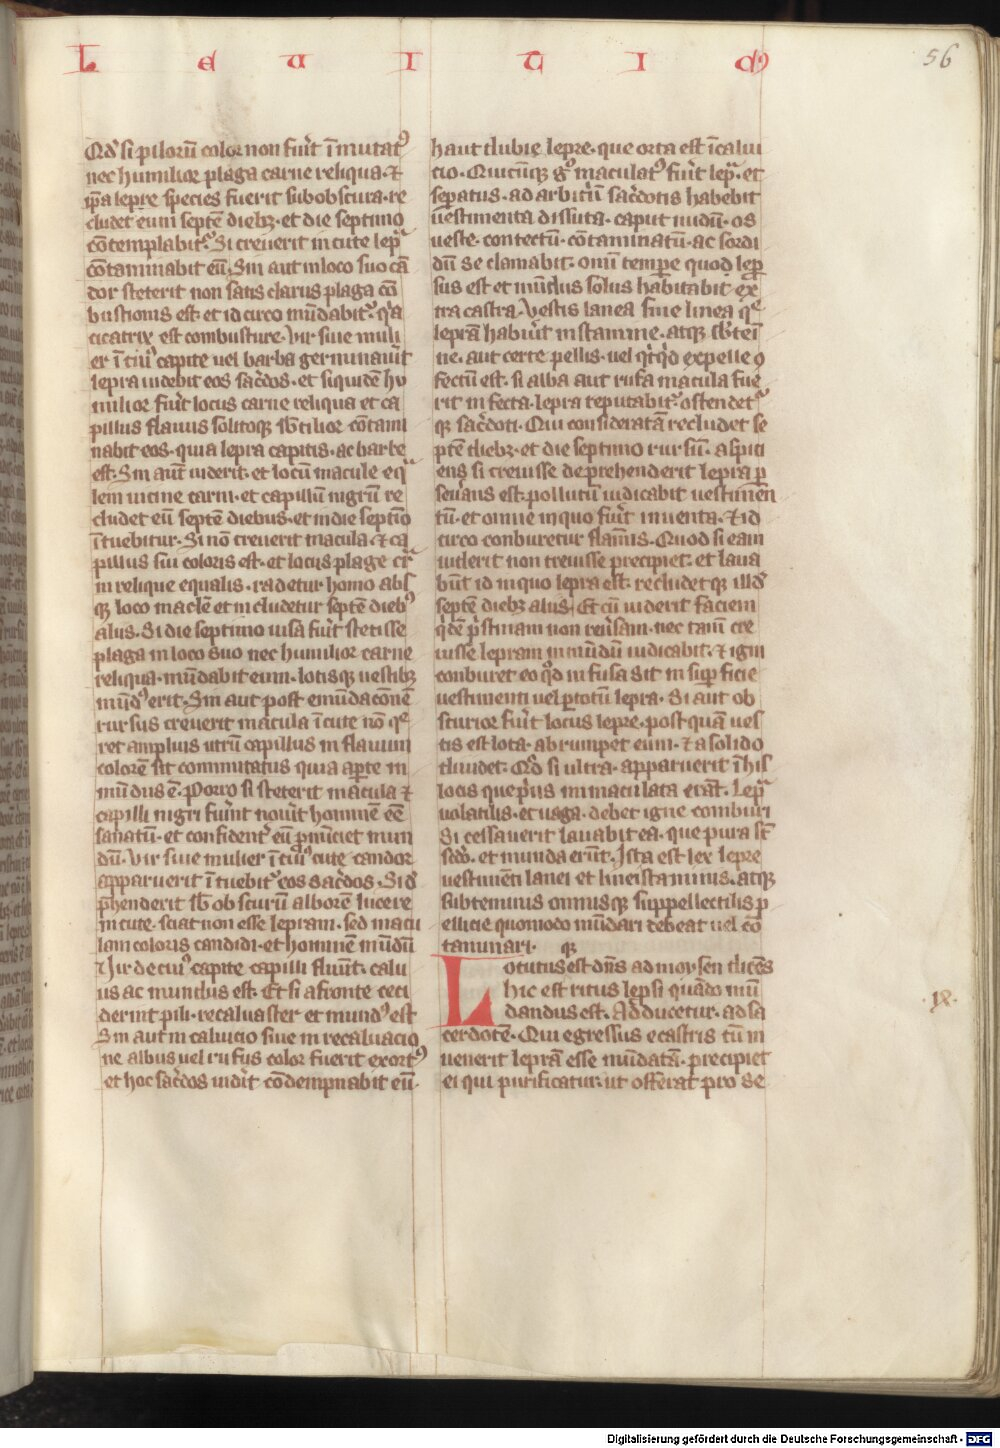 L e u i t i cꝰ
56
Qd' si pilorū color non fuīt īmutatꝰ
nec humilior plaga carne reliqua ⁊
ip̄a lepre species fuerit subobscura · re
cludet eum septē diebꝫ · et die septimo
cōtemplabit᷑ · Si creuerit in cute lep̄
cōtaminabit eū · Sin aut in loco suo cā
dor steterit non satis clarus plaga cō
bustionis est · et idcirco mūdabit᷑ · qͥa
cicatrix est combusture · Vir siue muli
er ī cuiꝰ capite uel barba germinauīt
lepra uidebit eos sac̄dos · et siquidē hu
milior fuīt locus carne reliqua et ca
pillus flauus solitoqꝫ sb̄tilior · cōtami
nabit eos · quia lepra capitis · ac barbe
est · Sin aūt uiderit · et locū macule eq̄
lem uicine carni · et capillū nigrū re
cludet eū septē diebus · et in die septīo
ītuebitur · Si nō creuerit macula · ⁊ ca
pillus sui coloris est · et locus plage cr̄
ni relique equalis · radetur homo abs
qꝫ loco macl̄e et includetur septē diebꝰ
aliis · Si die septimo uisa fuīt stetisse
plaga in loco suo nec humilior carne
reliqua · mūdabit eum · lotisqꝫ uestibꝫ
mūdꝰ erit · Sin aut post emūdacōnē
rursus creuerit macula ī cute nō q̄e
ret amplius utrū capillus in flauum
colorē sit commutatus quia aꝑte in
mūdus ē · Porro si steterit macula ⁊
capilli nigri fuīnt nouīt hominē eē
sanatū · et confident᷑ eū ꝓnūciet mun
dū · Vir siue mulier ī cuiꝰ cute candor
apparuerit ītuebit᷑ eos sac̄dos · Si d'
p̄henderit sb̄obscurū alborē lucere
in cute · sciat non esse lepram · sed macu
lam coloris candidi · et hominē mūdū
Vir de cuiꝰ capite capilli fluūt · calu
us ac mundus est · Et si a fronte ceci
derint pili · recaluaster et mundꝰ est
Sin aut in caluicio siue in recaluacio
ne albus uel rufus color fuerit exortꝰ
et hoc sac̄dos uidīt cōdempnabit eū ·
haut dubie lepre · que orta est ī calui
cio · Quicūqꝫ gͦ maculatꝰ fuīt lep̄ · et
sep̄atus · ad arbitriū sac̄dotis habebit
uestimenta dissuta · caput nudū · os
ueste · contectū · cōtaminatū · ac sordi
dū se clamabit · omī tempore quod lep̄
sus est et mūdus solus habitabit ex
tra castra · Vestis lanea siue linea q̄e
leprā habuīt in stamine · atqꝫ sb̄tem̄
ne · aut certe pellis · uel qͥcqͥd ex pelle ꝯ
fectū est · si alba aut rufa macula fue
rit infecta · lepra reputabit᷑ · ostendet᷑
qꝫ sac̄doti · Qui consideratā recludet se
ptē diebꝫ · et die septimo rursū · aspici
ens si creuisse deprehenderit lepra ꝑ
seu̅ans est · pollutū iudicabit uestimen
tū · et omne in quo fuīt inuenta · ⁊ id
circo comburetur flammis · Quod si eam
uiderit non creuisse precipiet · et laua
būt id in quo lepra est · recludetqꝫ illd'
septē diebꝫ aliis · Et cū uiderit faciem
qͥdē pͥstinam non reu̅sam · nec tam̄ cre
uisse lepram inmūdū iudicabit · ⁊ igni
conburet eo qd' infusa sit in suꝑficie
uestimenti uel ꝑ totū lepra · Si aut ob
scurior fuīt locus lepre · post quā ues
tis est lota · abrumpet eum · ⁊ a solido
diuidet · Qd' si ultra · apparuerit ī his
locis que pͥus immaculata erāt · Lep̄
uolatilis · et uaga · debet igne comburi
Si cessauerit lauabit ea · que pura st̄
scd̄o · et munda erūt · Ista est lex lepre
uestimēti lanei et linei staminis · atqꝫ
subteminis omnisqꝫ suppellectilis p
ellicie quomodo mūdari debeat uel cō
taminari ·
Locutusqꝫ est dn̄s ad moysen dicēs
hic est ritus lep̄si quādo mū
dandus est · Adducetur · ad sa
cerdotē · Qui egressus e castris cū in
uenerit leprā esse mūdatā · precipiet
ei qui purificatur · ut offerat pro se
· IX ·
Digitalisierung gefördert durch die Deutsche Forschungsgemeinschaft - DFG